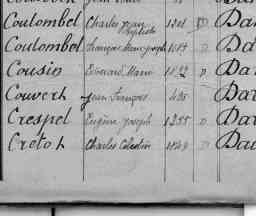 Coulombel Charles Jean Baptiste 1201 D Da
Coulombel François Marie Joseph 1814 D Da
Cousin Edouard Marie 1822 D Da
Couvert Jean François 485 Da
Crespel Eugène Joseph 1255 D Da
Cretot Charles Celestin 1549 D Da